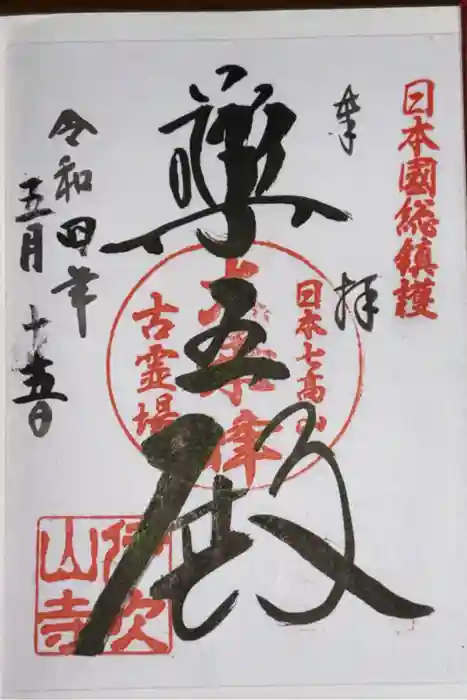 日本國総鎮護
奉拝
日本七高山
五殿
古霊場
令和四年
五月十五日
伊吹
山寺